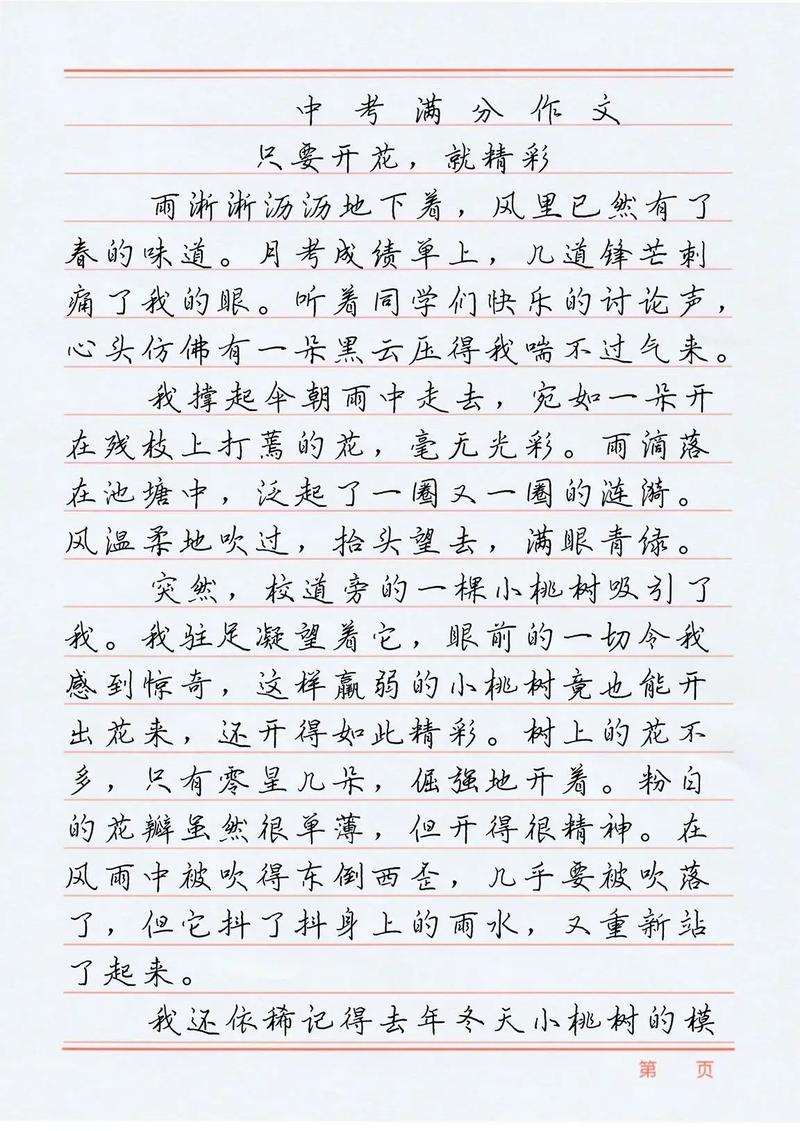 中考满分作文
只要开花，就精彩
雨淅淅沥沥地下着，风里已然有了
春的味道。月考成绩单上，几道锋芒刺
痛了我的眼。听着同学们快乐的讨论声，
心头仿佛有一朵黑云压得我喘不过气来。
我撑起伞朝雨中走去，宛如一朵开
在残枝上打蔫的花，毫无光彩。雨滴落
在池塘中，泛起了一圈又一圈的涟漪。
风温柔地吹过，抬头望去，满眼青绿。
突然，校道旁的一棵小桃树吸引了
我。我驻足凝望着它，眼前的一切令我
感到惊奇，这样羸弱的小桃树竟也能开
出花来，还开得如此精彩。树上的花不
多，只有零星几朵，倔强地开着。粉白
的花瓣虽然很单薄，但开得很精神。在
风雨中被吹得东倒西歪，几乎要被吹落
了，但它抖了抖身上的雨水，又重新站
了起来。
我还依稀记得去年冬天小桃树的模
第 页